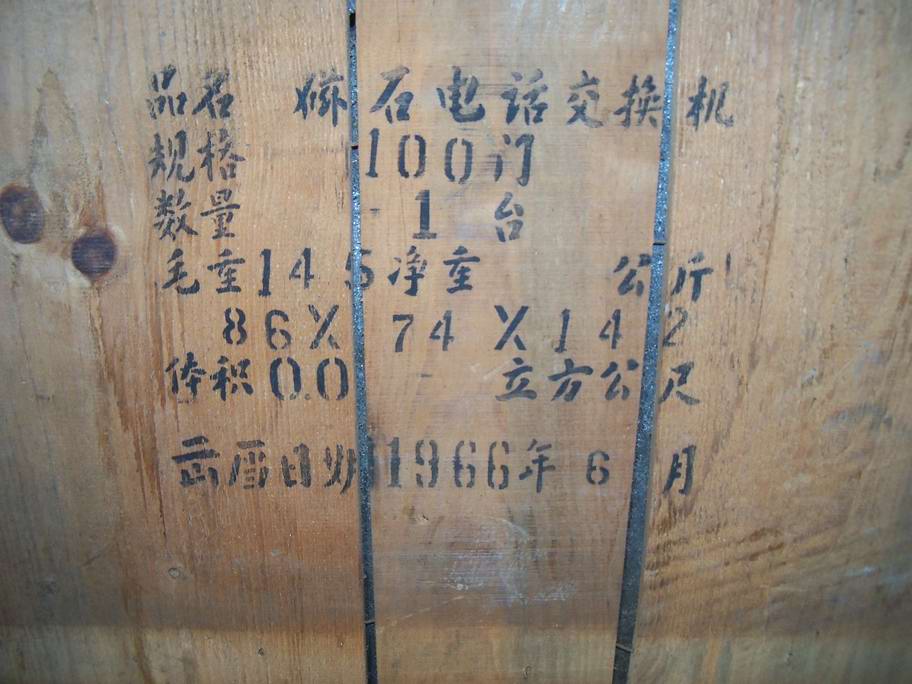 品名 磁石电话交换机
规格 100门
数量 1 台
毛重145净重 公斤
86X 74 X142
体积0.0 立方公尺
出厂日期1966年6月